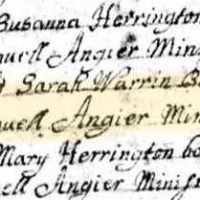 Susanna Herrington
uell Angier Min
Sarah Warrin B
uell Angier Min
Mary Herrington bo
ell Angier Minist